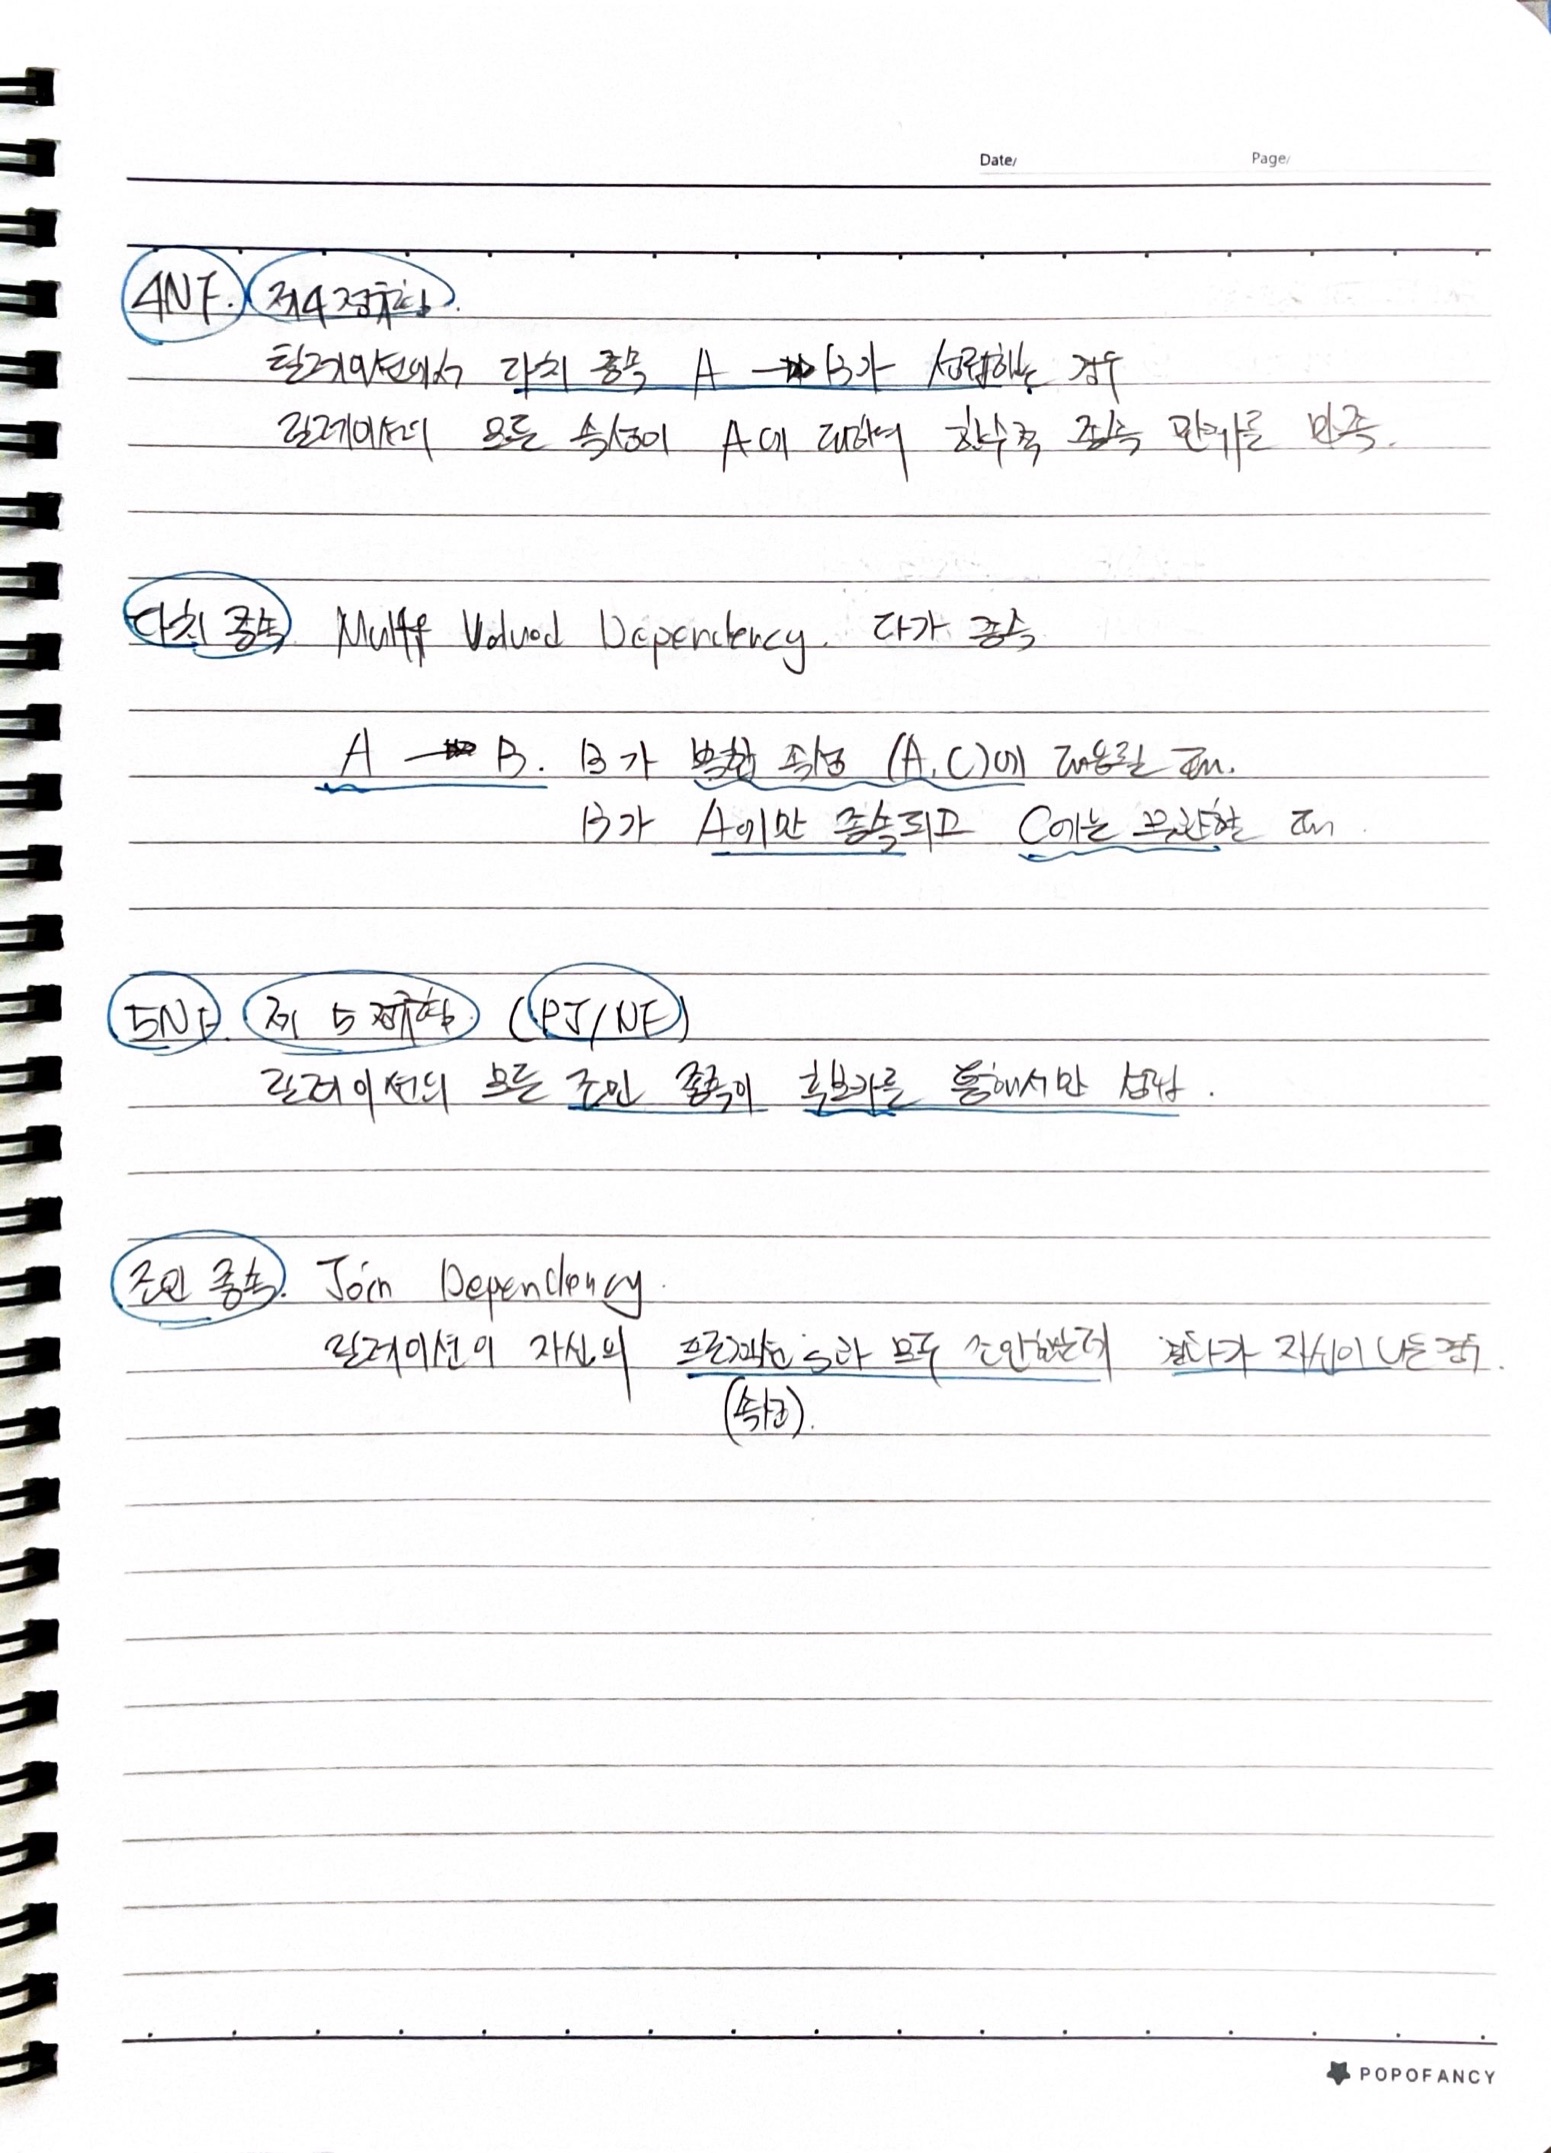 Date/ Page/
4NF. 제4정규형.
릴레이션에서 다치 종속 A →→ B가 성립하는 경우
릴레이션의 모든 속성이 A에 대하여 함수적 종속 관계를 만족.
다치 종속 Multi Valued Dependency. 다가 종속
A →→ B. B가 복합 속성 (A, C)에 대응될 때.
B가 A에만 종속되고 C에는 무관할 때.
5NF. 제 5 정규형. (PJ/NF)
릴레이션의 모든 조인 종속이 후보키를 통해서만 성립.
조인 종속. Join Dependency.
릴레이션이 자신의 프로젝션s라 모두 조인했는데 결과가 자신이 나는 경우.
(속성).
POPOFANCY